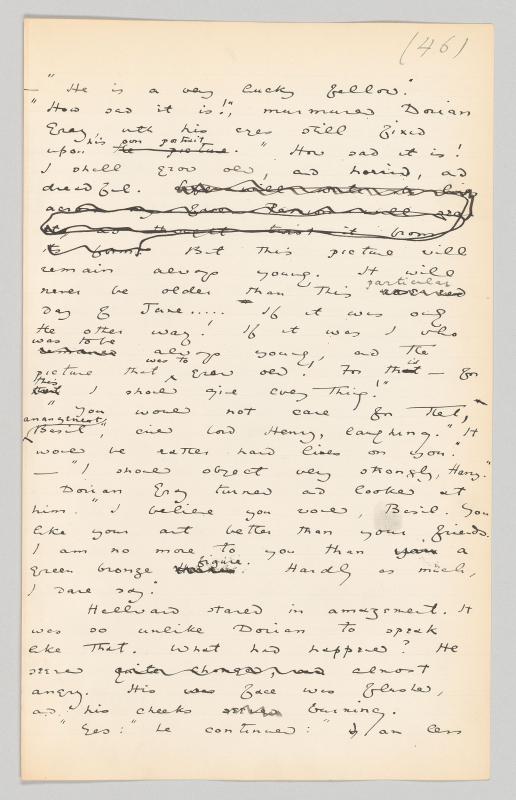 (46)
— "He is a very lucky fellow."
"How sad it is!", murmured Dorian
Gray, with his eyes still fixed
upon his own portrait the picture. "How sad it is!
I shall grow old, and horrid, and
dreadful. Life will
across my brow Passion will
and thought twist it from
its form. But this picture will
remain always young. It will
never be older than this particular
day of June..... If it was only
the other way! If it was I who
was to be always young, and the
picture that was to grow old! For this — for
this I should give everything!"
"You would not care for that
arrangement, Basil", cried Lord Henry, laughing. "It
would be rather hard lines on you."
— "I should object very strongly, Harry."
Dorian Gray turned and looked at
him. "I believe you would, Basil. You
like your art better than your friends.
I am no more to you than a
green bronze figure. Hardly as much,
I dare say."
Hallward stared in amazement. It
was so unlike Dorian to speak
like that. What had happened? He
seemed quite changed, and almost
angry. His was face was flushed,
and his cheeks seemed burning.
"Yes:" he continued: "I am less